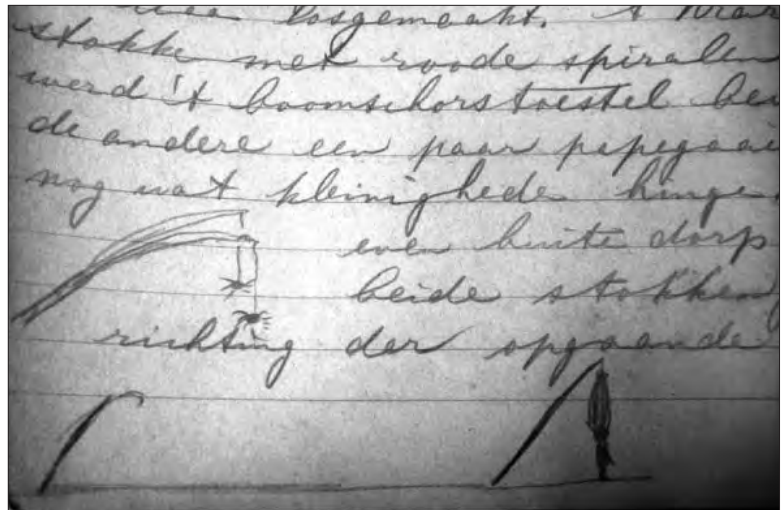 losgemaakt.
stokke met roode spiralen
werd 't boomschorstoestel be
de andere een paar papegaai
nog wat kleinighede hinge
even buite dorp
beide stokken
richting der opgaande